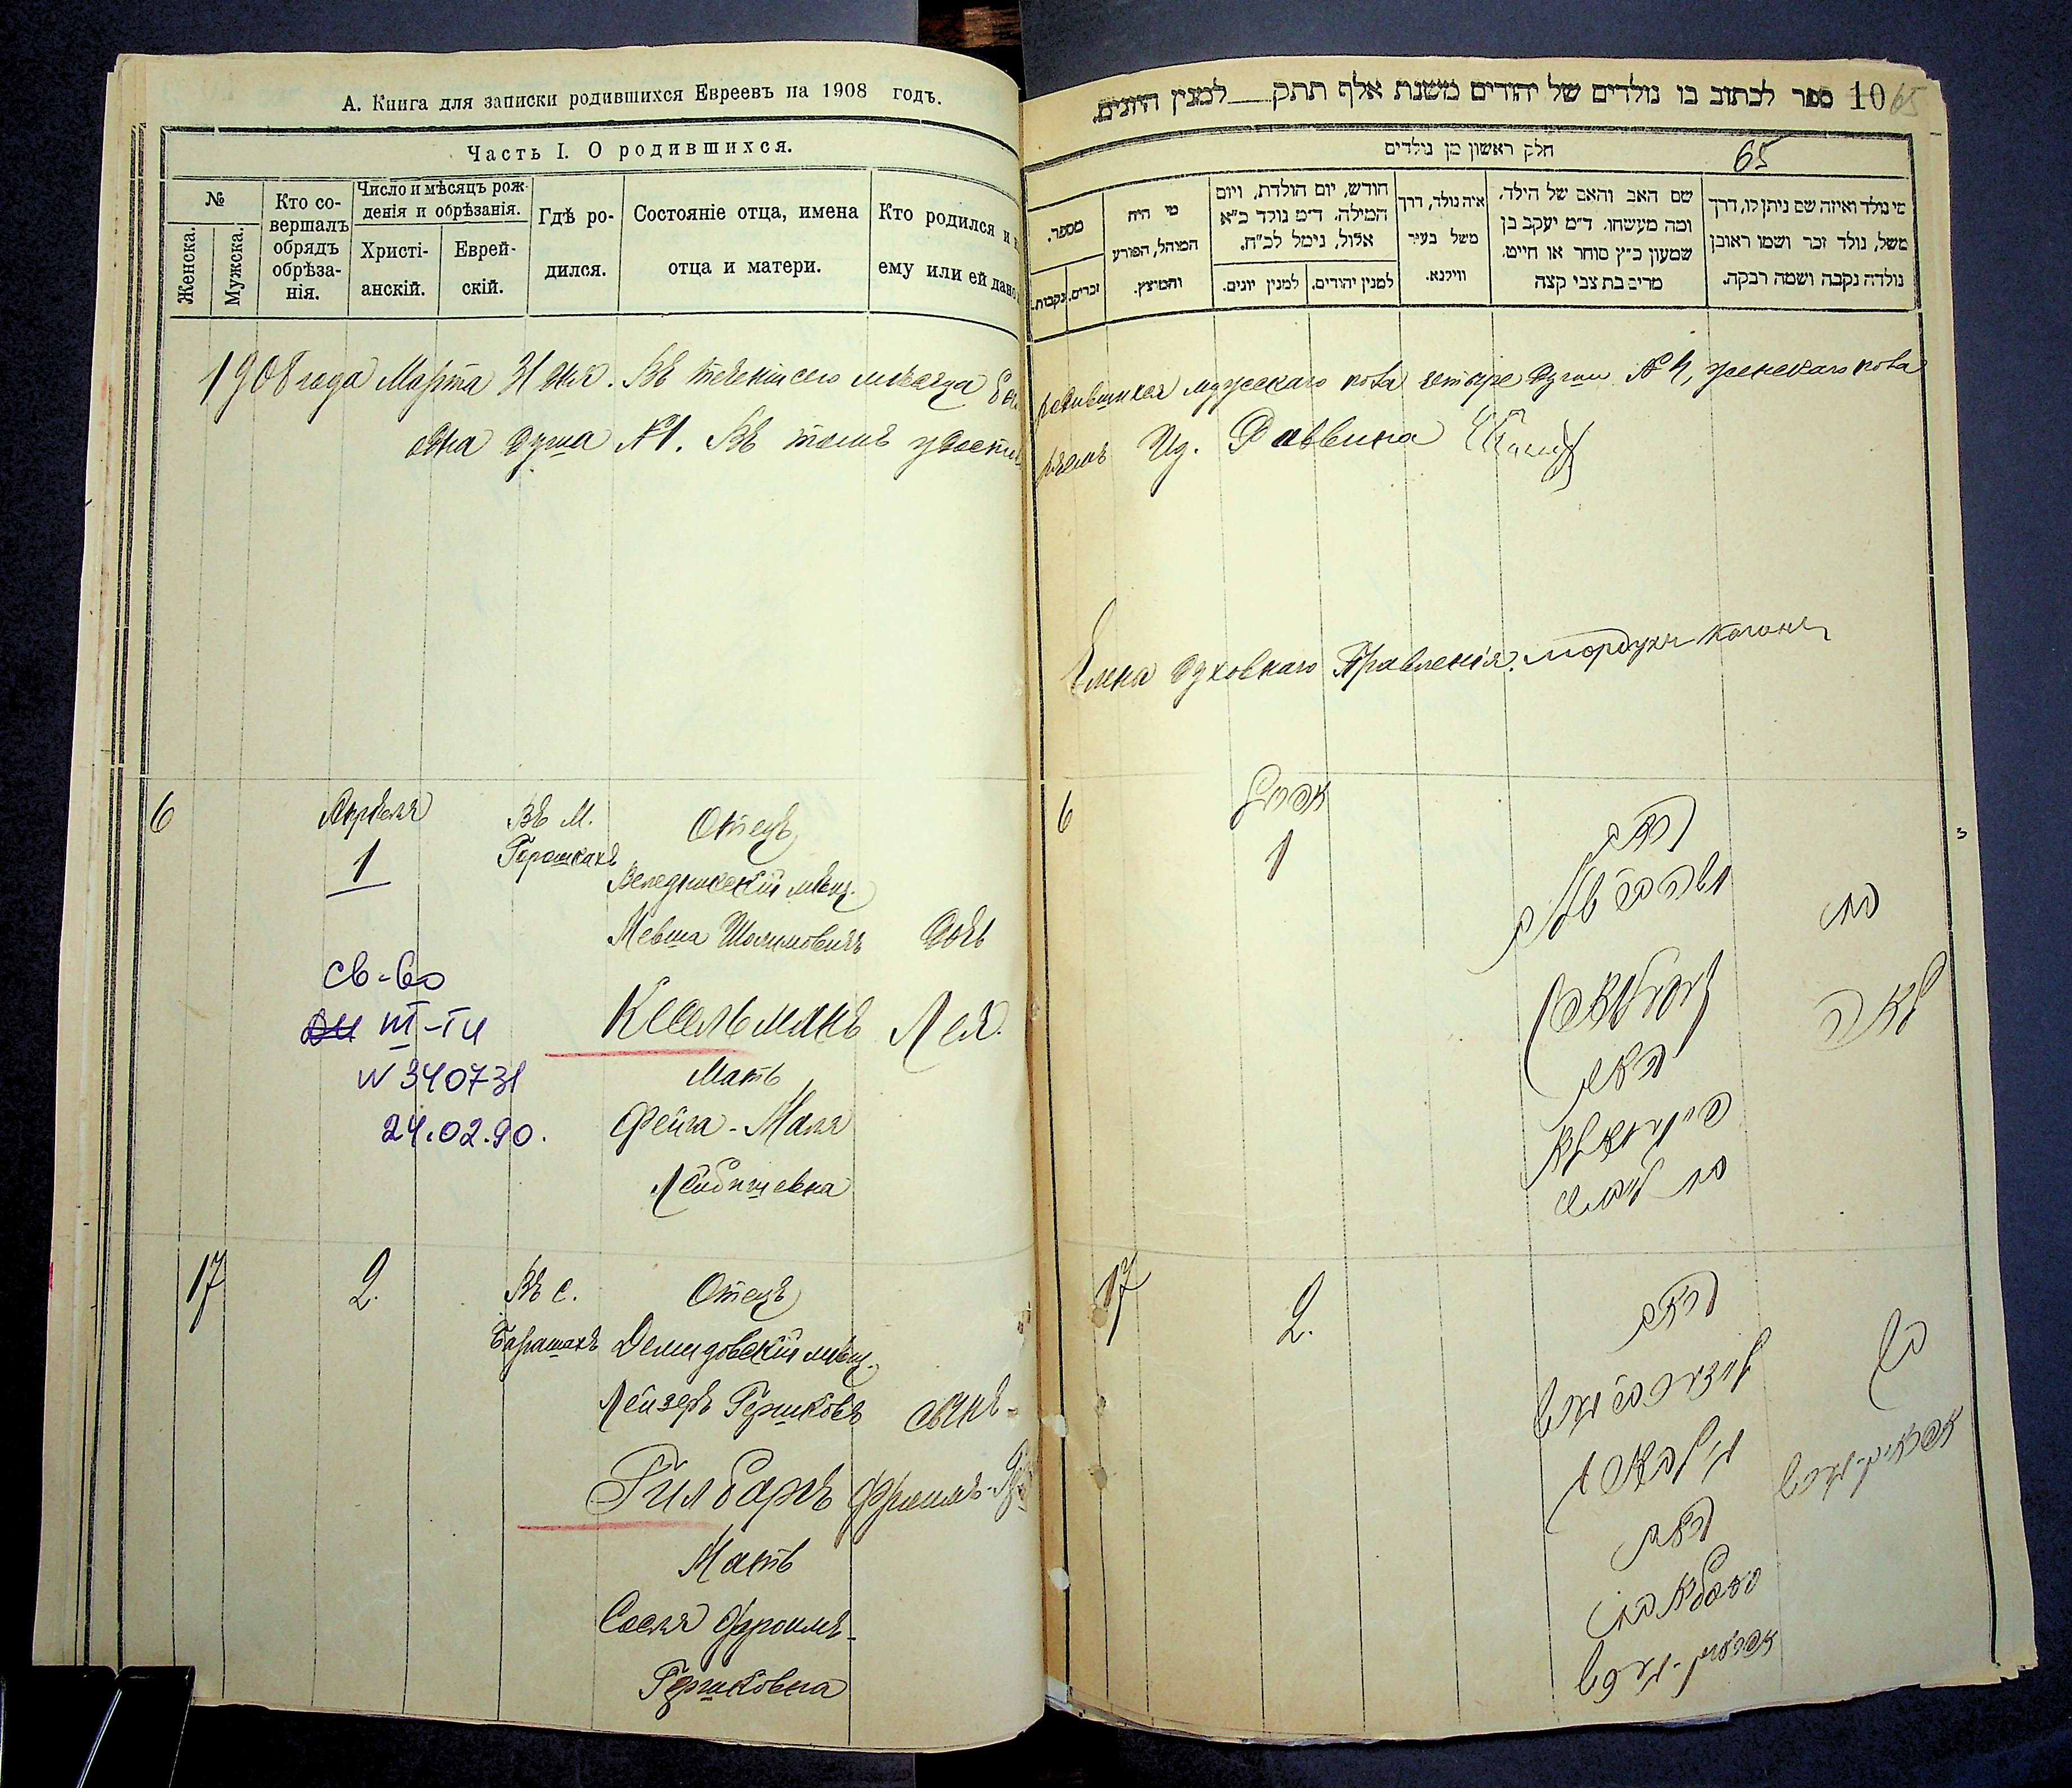 А. Книга для записки родившихся Евреевъ на 1908 годъ.
Часть I. О родившихся.
№
Женска.
Мужска.
Кто со-
вершалъ
обрядъ
обрѣза-
нія.
Число и мѣсяцъ рож-
денія и обрѣзанія.
Христі-
анскій.
Еврей-
скій.
Гдѣ ро-
дился.
Состояніе отца, имена
отца и матери.
Кто родился и
ему или ей дано
1908 года Марта 31 дня. Въ теченіи сего мѣсяца
одна душа № 1. Въ томъ
6
Апрѣля
1
Въ М.
Горошкахъ
Отецъ
Веледникскій мѣщ.
Мевша Шолимовичъ
Кесельманъ
Мать
Фейга-Маля
Лейбишевна
Дочь
Лея.
св-во
III-ТИ
N 340731
24.02.90.
17
2.
Въ с.
Барашахъ
Отецъ
Демидовскій мѣщ.
Лейзеръ Гершковъ
Гилбаргъ
Мать
Сосля Фроимъ-
Гершковна
сынъ-
Фроимъ-
ספר לכתוב בו נולדים של יהודים משנת אלף תתק למנין היונים.
10 65
חלק ראשון מן נולדים
65
מספר.
זכרים.
נקבות.
מי היה
המוהל, הפורע
והמוצץ.
חודש, יום הולדת, ויום
המילה. ד״מ נולד כ״א
אלול, נימל לכ״ח.
למנין יהודים.
למנין יונים.
איה נולד, דרך
משל בעיר
ווילנא.
שם האב והאם של הילד,
ומה מעשהו. ד״מ יעקב בן
שמעון כ״ץ סוחר או חייט,
מרים בת צבי קצה
מי נולד ואיזה שם ניתן לו, דרך
משל, נולד זכר ושמו ראובן
נולדה נקבה ושמה רבקה.
родившихся мужескаго пола четыре души № 4, женскаго пола
Ид. Раввина
Члена Духовнаго Правленія. Мордухъ Каганъ
6
אפריל
1
האב
האם
בת
לאה
17
2.
האב
האם
בן